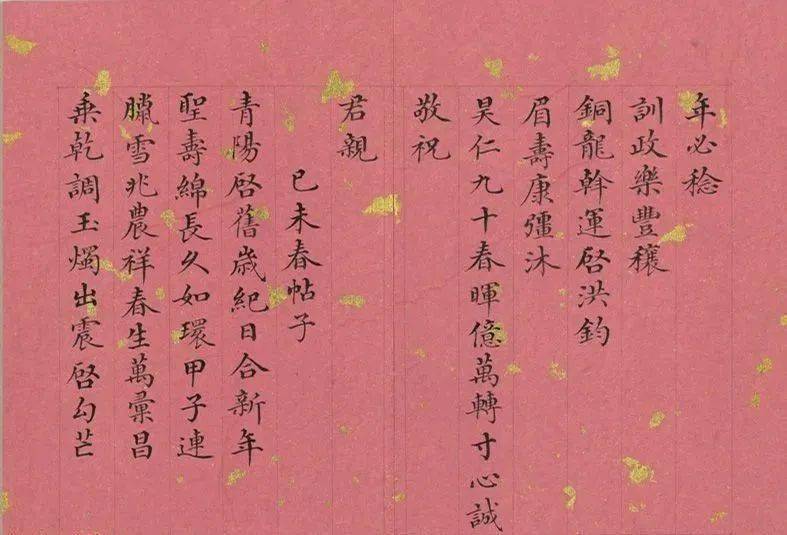 年必稔
訓政樂豐穰
銅龍斡運啓洪鈞
眉壽康彊沐
昊仁九十春暉億萬轉寸心誠
敬祝
君親
己未春帖子
青陽啓舊歲紀日合新年
聖壽綿長久如環甲子連
臘雪兆農祥春生萬彙昌
乘乾調玉燭出震啓勾芒